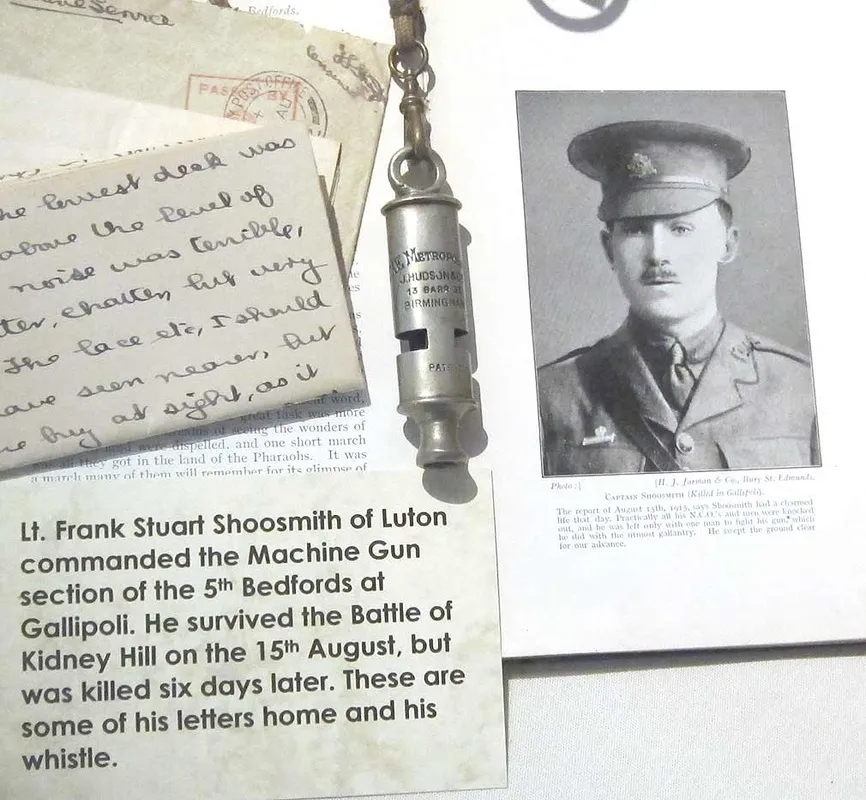 Service
Bedfords.
PASSED BY
POST OFFICE
he lowest deck was
above the level of
noise was terrible,
ter, chatter, but very
The lace etc, I should
have seen nearer, but
buy at sight, as it
word,
great task was more
of seeing the wonders of
were dispelled, and one short march
was all they got in the land of the Pharaohs. It was
a march many of them will remember for its glimpse of
THE METROPO
J. HUDSON & C
13 BARR ST
BIRMINGHAM
PAT
Photo:] [H. J. Jarman & Co., Bury St. Edmunds.
CAPTAIN SHOOSMITH (Killed in Gallipoli).
The report of August 15th, 1915, says Shoosmith had a charmed
life that day. Practically all his N.C.O.'s and men were knocked
out, and he was left only with one man to fight his gun, which
he did with the utmost gallantry. He swept the ground clear
for our advance.
Lt. Frank Stuart Shoosmith of Luton
commanded the Machine Gun
section of the 5th Bedfords at
Gallipoli. He survived the Battle of
Kidney Hill on the 15th August, but
was killed six days later. These are
some of his letters home and his
whistle.